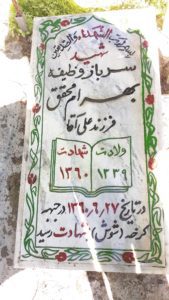 شهید
سرباز وظیفه
بهرام محقق
فرزند علی آقا
ولادت شهادت
۱۳۳۹ ۱۳۶۰
در تاریخ ۱۳۶۰/۶/۲۷ در جبهه
کرخه (شوش) بشهادت رسید